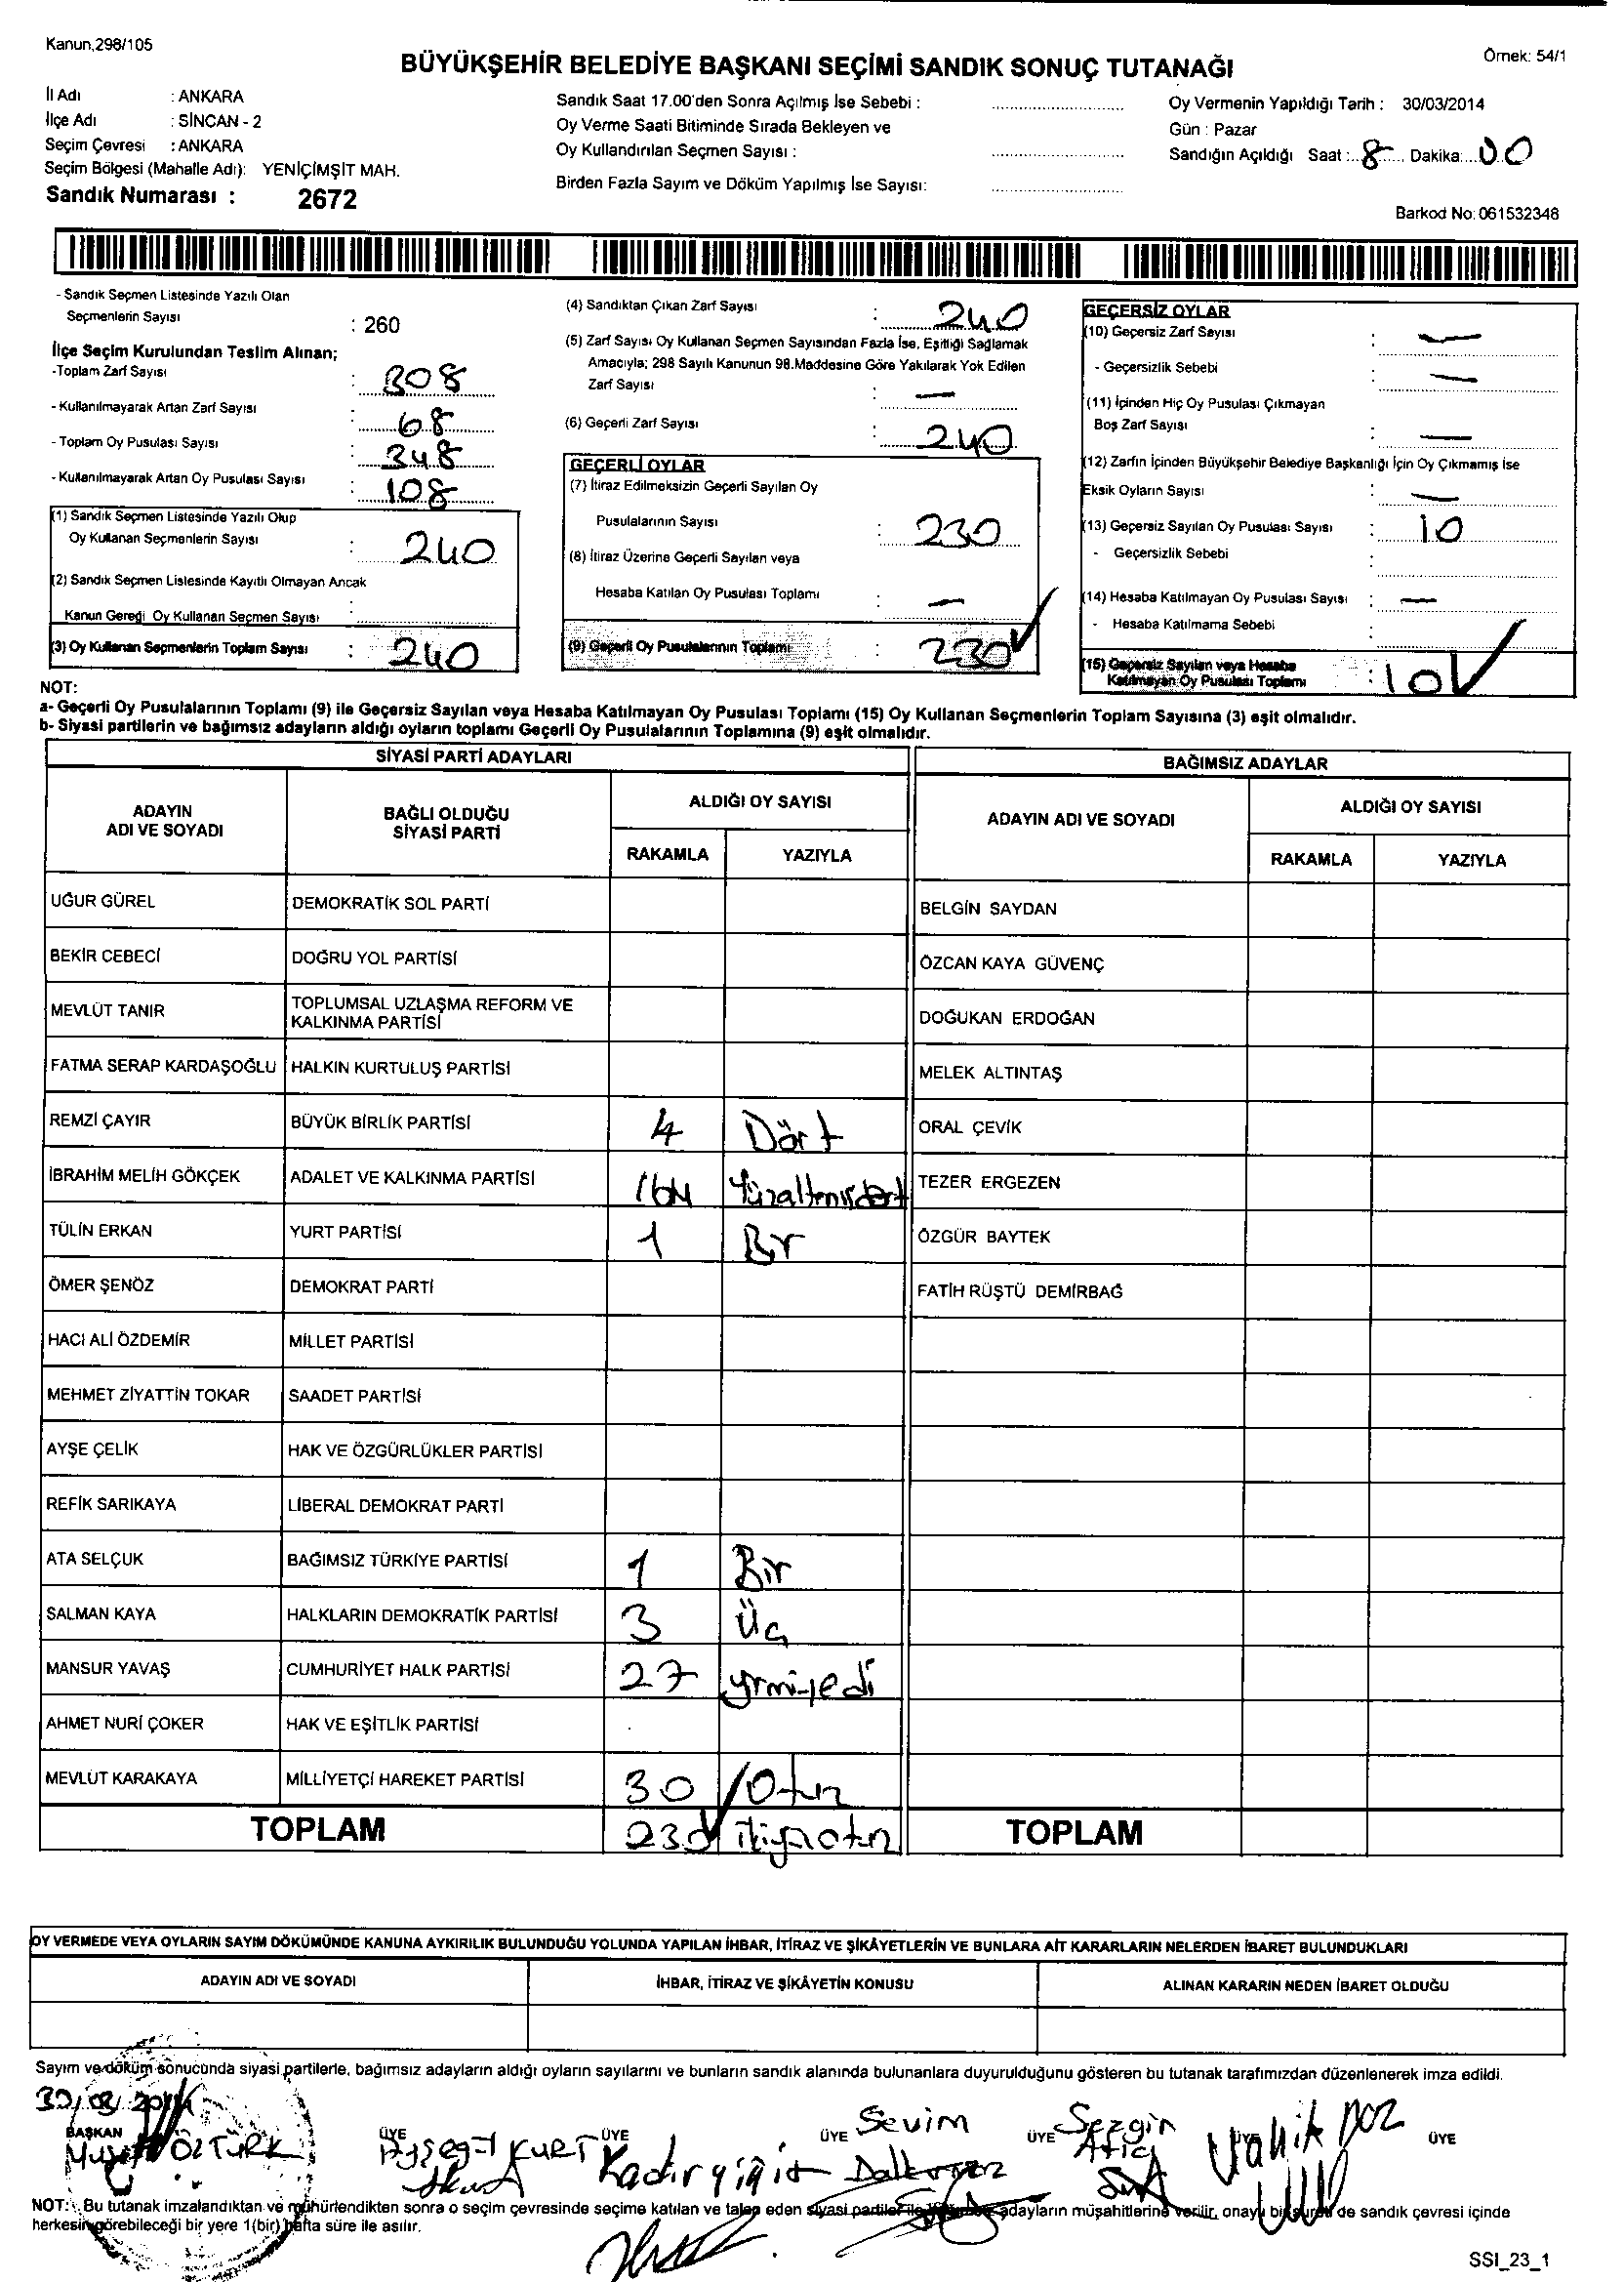 Kanun,298/105
Örnek: 54/1
BÜYÜKŞEHİR BELEDİYE BAŞKANI SEÇİMİ SANDIK SONUÇ TUTANAĞI
İl Adı : ANKARA
İlçe Adı : SİNCAN - 2
Seçim Çevresi : ANKARA
Seçim Bölgesi (Mahalle Adı): YENİÇİMŞİT MAH.
Sandık Numarası : 2672
Sandık Saat 17.00'den Sonra Açılmış İse Sebebi :
Oy Verme Saati Bitiminde Sırada Bekleyen ve
Oy Kullandırılan Seçmen Sayısı :
Birden Fazla Sayım ve Döküm Yapılmış İse Sayısı:
Oy Vermenin Yapıldığı Tarih : 30/03/2014
Gün : Pazar
Sandığın Açıldığı Saat :..8... Dakika:...00
Barkod No: 061532348
- Sandık Seçmen Listesinde Yazılı Olan
Seçmenlerin Sayısı : 260
İlçe Seçim Kurulundan Teslim Alınan;
-Toplam Zarf Sayısı : 308
- Kullanılmayarak Artan Zarf Sayısı : 68
- Toplam Oy Pusulası Sayısı : 348
- Kullanılmayarak Artan Oy Pusulası Sayısı : 108
(1) Sandık Seçmen Listesinde Yazılı Olup
Oy Kullanan Seçmenlerin Sayısı : 240
(2) Sandık Seçmen Listesinde Kayıtlı Olmayan Ancak
Kanun Gereği Oy Kullanan Seçmen Sayısı :
(3) Oy Kullanan Seçmenlerin Toplam Sayısı : 240
(4) Sandıktan Çıkan Zarf Sayısı : 240
(5) Zarf Sayısı Oy Kullanan Seçmen Sayısından Fazla İse, Eşitliği Sağlamak
Amacıyla; 298 Sayılı Kanunun 98.Maddesine Göre Yakılarak Yok Edilen
Zarf Sayısı : —
(6) Geçerli Zarf Sayısı : 240
GEÇERLİ OYLAR
(7) İtiraz Edilmeksizin Geçerli Sayılan Oy
Pusulalarının Sayısı : 230
(8) İtiraz Üzerine Geçerli Sayılan veya
Hesaba Katılan Oy Pusulası Toplamı : —
(9) Geçerli Oy Pusulalarının Toplamı : 230
GEÇERSİZ OYLAR
(10) Geçersiz Zarf Sayısı : —
- Geçersizlik Sebebi : —
(11) İçinden Hiç Oy Pusulası Çıkmayan
Boş Zarf Sayısı : —
(12) Zarfın İçinden Büyükşehir Belediye Başkanlığı İçin Oy Çıkmamış İse
Eksik Oyların Sayısı : —
(13) Geçersiz Sayılan Oy Pusulası Sayısı : 10
- Geçersizlik Sebebi :
(14) Hesaba Katılmayan Oy Pusulası Sayısı : —
- Hesaba Katılmama Sebebi :
(15) Geçersiz Sayılan veya Hesaba
Katılmayan Oy Pusulası Toplamı : 10
NOT:
a- Geçerli Oy Pusulalarının Toplamı (9) ile Geçersiz Sayılan veya Hesaba Katılmayan Oy Pusulası Toplamı (15) Oy Kullanan Seçmenlerin Toplam Sayısına (3) eşit olmalıdır.
b- Siyasi partilerin ve bağımsız adayların aldığı oyların toplamı Geçerli Oy Pusulalarının Toplamına (9) eşit olmalıdır.
SİYASİ PARTİ ADAYLARI
ADAYIN ADI VE SOYADI
BAĞLI OLDUĞU SİYASİ PARTİ
ALDIĞI OY SAYISI
RAKAMLA YAZIYLA
UĞUR GÜREL DEMOKRATİK SOL PARTİ
BEKİR CEBECİ DOĞRU YOL PARTİSİ
MEVLÜT TANIR TOPLUMSAL UZLAŞMA REFORM VE KALKINMA PARTİSİ
FATMA SERAP KARDAŞOĞLU HALKIN KURTULUŞ PARTİSİ
REMZİ ÇAYIR BÜYÜK BİRLİK PARTİSİ 4 Dört
İBRAHİM MELİH GÖKÇEK ADALET VE KALKINMA PARTİSİ 164 Yüzaltmışdört
TÜLİN ERKAN YURT PARTİSİ 1 Bir
ÖMER ŞENÖZ DEMOKRAT PARTİ
HACI ALİ ÖZDEMİR MİLLET PARTİSİ
MEHMET ZİYATTİN TOKAR SAADET PARTİSİ
AYŞE ÇELİK HAK VE ÖZGÜRLÜKLER PARTİSİ
REFİK SARIKAYA LİBERAL DEMOKRAT PARTİ
ATA SELÇUK BAĞIMSIZ TÜRKİYE PARTİSİ 1 Bir
SALMAN KAYA HALKLARIN DEMOKRATİK PARTİSİ 3 Üç
MANSUR YAVAŞ CUMHURİYET HALK PARTİSİ 27 yrmiyedi
AHMET NURİ ÇOKER HAK VE EŞİTLİK PARTİSİ
MEVLÜT KARAKAYA MİLLİYETÇİ HAREKET PARTİSİ 30 Otuz
TOPLAM 230 ikiyüzotuz
BAĞIMSIZ ADAYLAR
ADAYIN ADI VE SOYADI
ALDIĞI OY SAYISI
RAKAMLA YAZIYLA
BELGİN SAYDAN
ÖZCAN KAYA GÜVENÇ
DOĞUKAN ERDOĞAN
MELEK ALTINTAŞ
ORAL ÇEVİK
TEZER ERGEZEN
ÖZGÜR BAYTEK
FATİH RÜŞTÜ DEMİRBAĞ
TOPLAM
OY VERMEDE VEYA OYLARIN SAYIM DÖKÜMÜNDE KANUNA AYKIRILIK BULUNDUĞU YOLUNDA YAPILAN İHBAR, İTİRAZ VE ŞİKÂYETLERİN VE BUNLARA AİT KARARLARIN NELERDEN İBARET BULUNDUKLARI
ADAYIN ADI VE SOYADI İHBAR, İTİRAZ VE ŞİKÂYETİN KONUSU ALINAN KARARIN NEDEN İBARET OLDUĞU
Sayım ve döküm sonucunda siyasi partilerle, bağımsız adayların aldığı oyların sayılarını ve bunların sandık alanında bulunanlara duyurulduğunu gösteren bu tutanak tarafımızdan düzenlenerek imza edildi.
30/03/2014
BAŞKAN ÜYE ÜYE ÜYE ÜYE ÜYE
ÖZTÜRK Ayşegül KURT Kadir yiğit Sevim Sezgin Atıcı
NOT: Bu tutanak imzalandıktan ve mühürlendikten sonra o seçim çevresinde seçime katılan ve talep eden siyasi partiler ile adayların müşahitlerine verilir, onaylı bir sureti de sandık çevresi içinde
herkesin görebileceği bir yere 1(bir) hafta süre ile asılır.
SSI_23_1